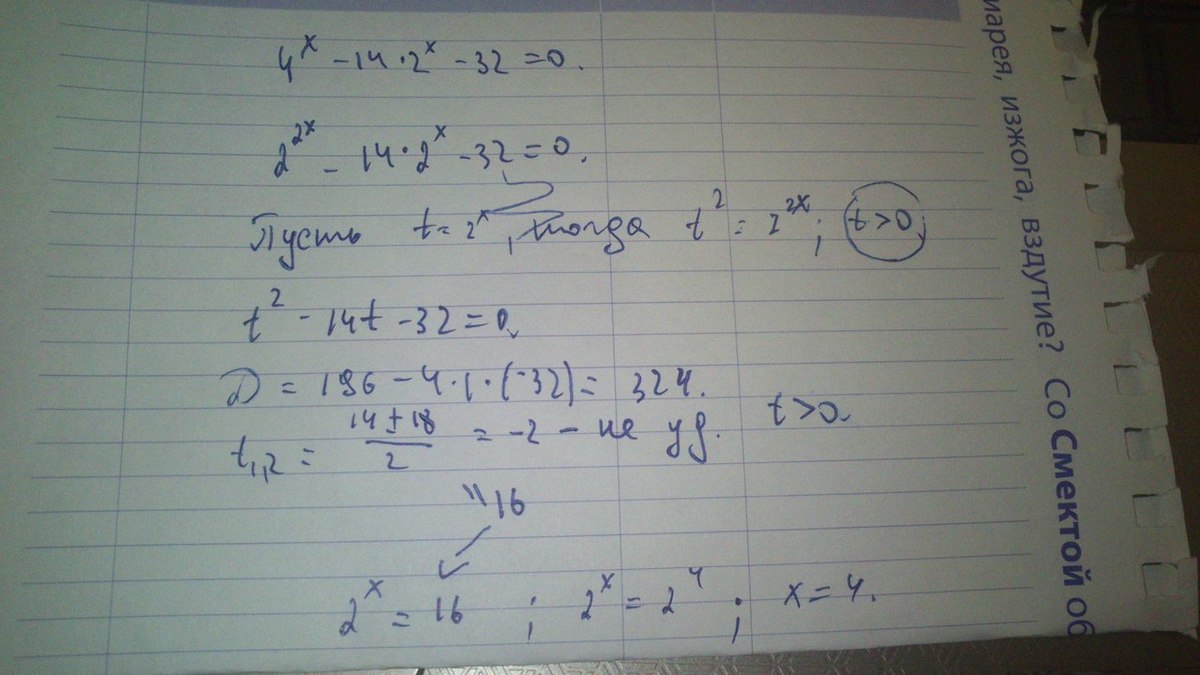 4^x - 14·2^x - 32 = 0.
2^2x - 14·2^x - 32 = 0.
Пусть t = 2^x, тогда t^2 = 2^2x; t > 0.
t^2 - 14t - 32 = 0.
D = 196 - 4·1·(-32) = 324.
t1,2 = (14 ± 18)/2 = -2 - не уд. t > 0.
= 16
2^x = 16 ; 2^x = 2^4 ; x = 4.
иарея, изжога, вздутие? Со Смектой об